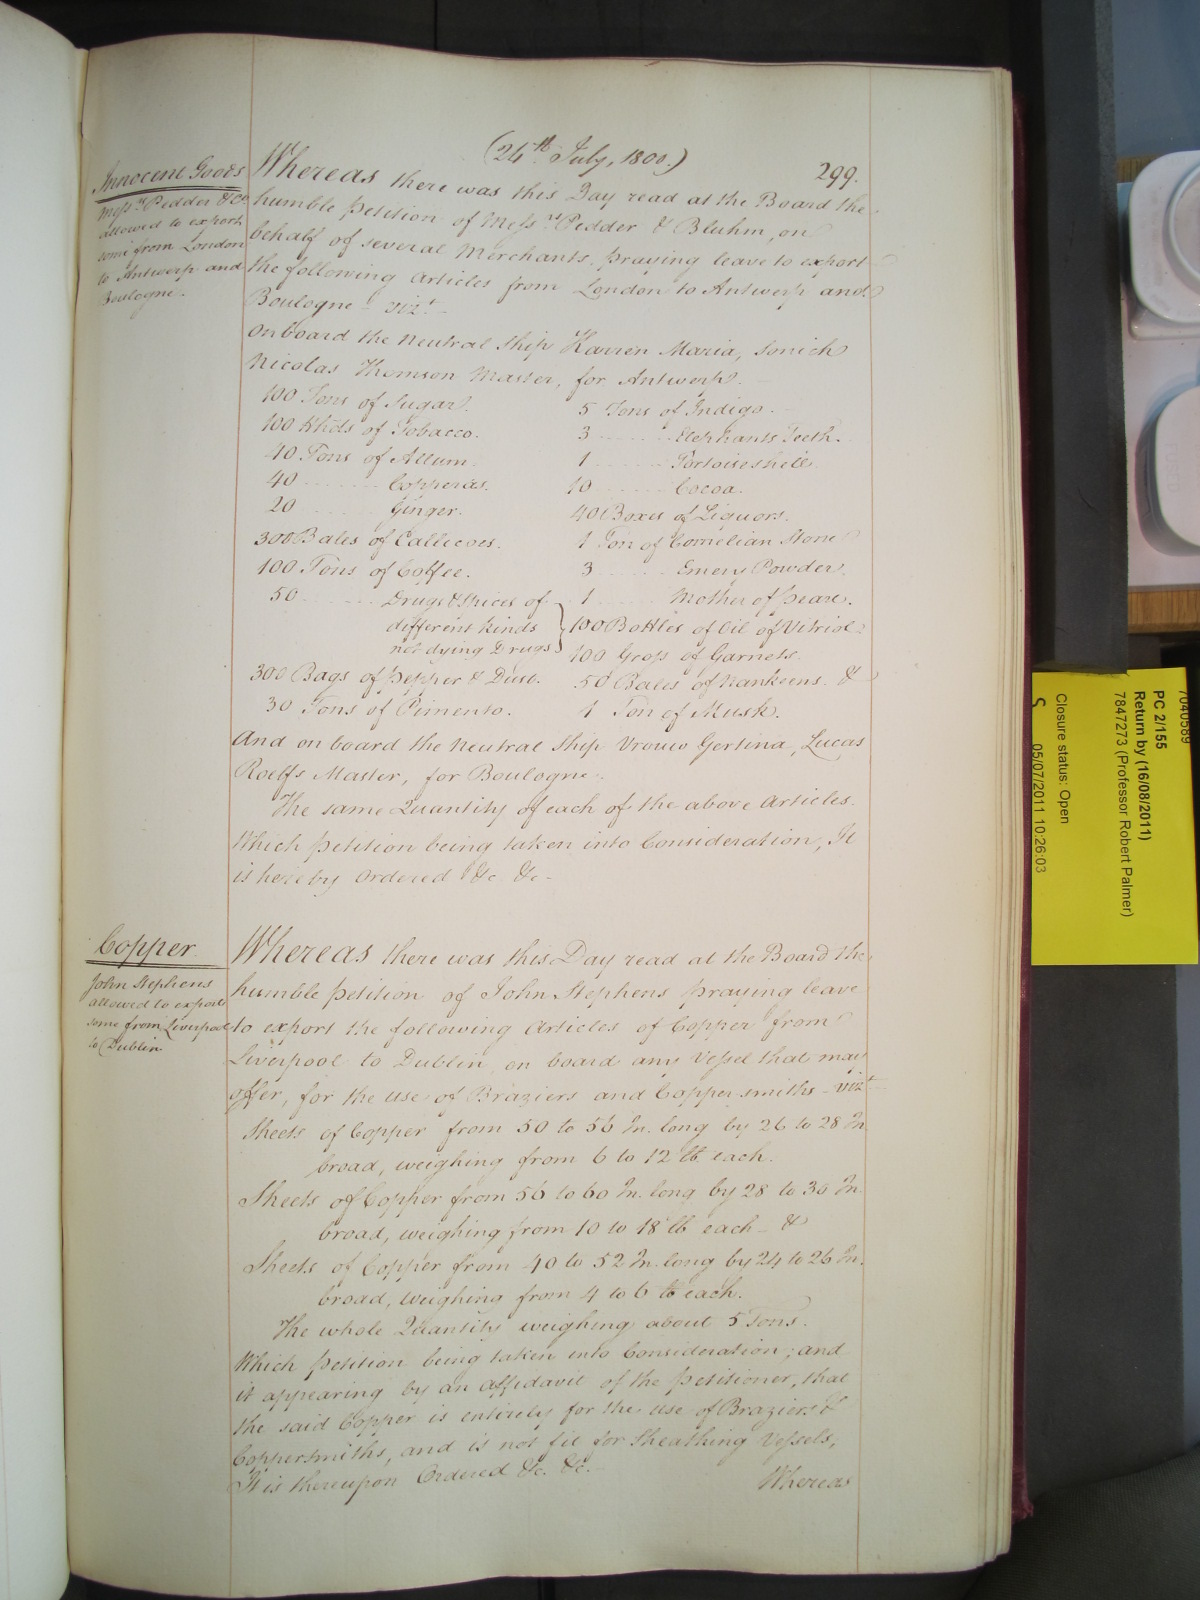 (24th July, 1800.)
299.
Innocent Goods
Messrs Pedder & Co.
allowed to export
some from London
to Antwerp and
Boulogne.
Whereas there was this Day read at the Board the
humble Petition of Messrs Pedder & Bluhm, on
behalf of several Merchants, praying leave to export
the following Articles from London to Antwerp and
Boulogne vizt
On board the Neutral Ship Karren Maria, Jonich
Nicolas Thomson Master, for Antwerp.
100 Tons of Sugar.
100 Hhds of Tobacco.
40 Tons of Allum.
40 ...... Copperas.
20 ...... Ginger.
300 Bales of Callicoes.
100 Tons of Coffee.
50 ...... Drugs & Spices of
different kinds
not dying Drugs
300 Bags of Pepper & Dust.
30 Tons of Pimento.
5 Tons of Indigo.
3 ...... Elephants Teeth.
1 ...... Tortoiseshell.
10 ...... Cocoa.
40 Boxes of Liquors.
1 Ton of Cornelian Stone
3 ...... Emery Powder.
1 ...... Mother of pearl.
100 Bottles of Oil of Vitriol
100 Gross of Garnets.
50 Bales of Nankeens. &
1 Ton of Musk.
And on board the Neutral Ship Vrouw Gertina, Lucas
Roelfs Master, for Boulogne.
The same Quantity of each of the above Articles.
Which Petition being taken into Consideration, It
is hereby Ordered &c &c
Copper
John Stephens
allowed to export
some from Liverpool
to Dublin
Whereas there was this Day read at the Board the
humble Petition of John Stephens praying leave
to export the following Articles of Copper from
Liverpool to Dublin, on board any Vessel that may
offer, for the use of Braziers and Coppersmiths vizt
Sheets of Copper from 50 to 56 In. long by 26 to 28 In
broad, weighing from 6 to 12 lb each.
Sheets of Copper from 56 to 60 In. long by 28 to 30 In.
broad, weighing from 10 to 18 lb each &
Sheets of Copper from 40 to 52 In. long by 24 to 26 In.
broad, weighing from 4 to 6 lb each.
The whole Quantity weighing about 5 Tons.
Which Petition being taken into Consideration; and
it appearing by an Affidavit of the Petitioner, that
the said Copper is entirely for the use of Braziers &
Coppersmiths, and is not fit for Sheathing Vessels,
It is thereupon Ordered &c. &c.
Whereas
7040589
PC 2/155
Return by (16/08/2011)
7847273 (Professor Robert Palmer)
Closure status: Open
S 05/07/2011 10:26:03